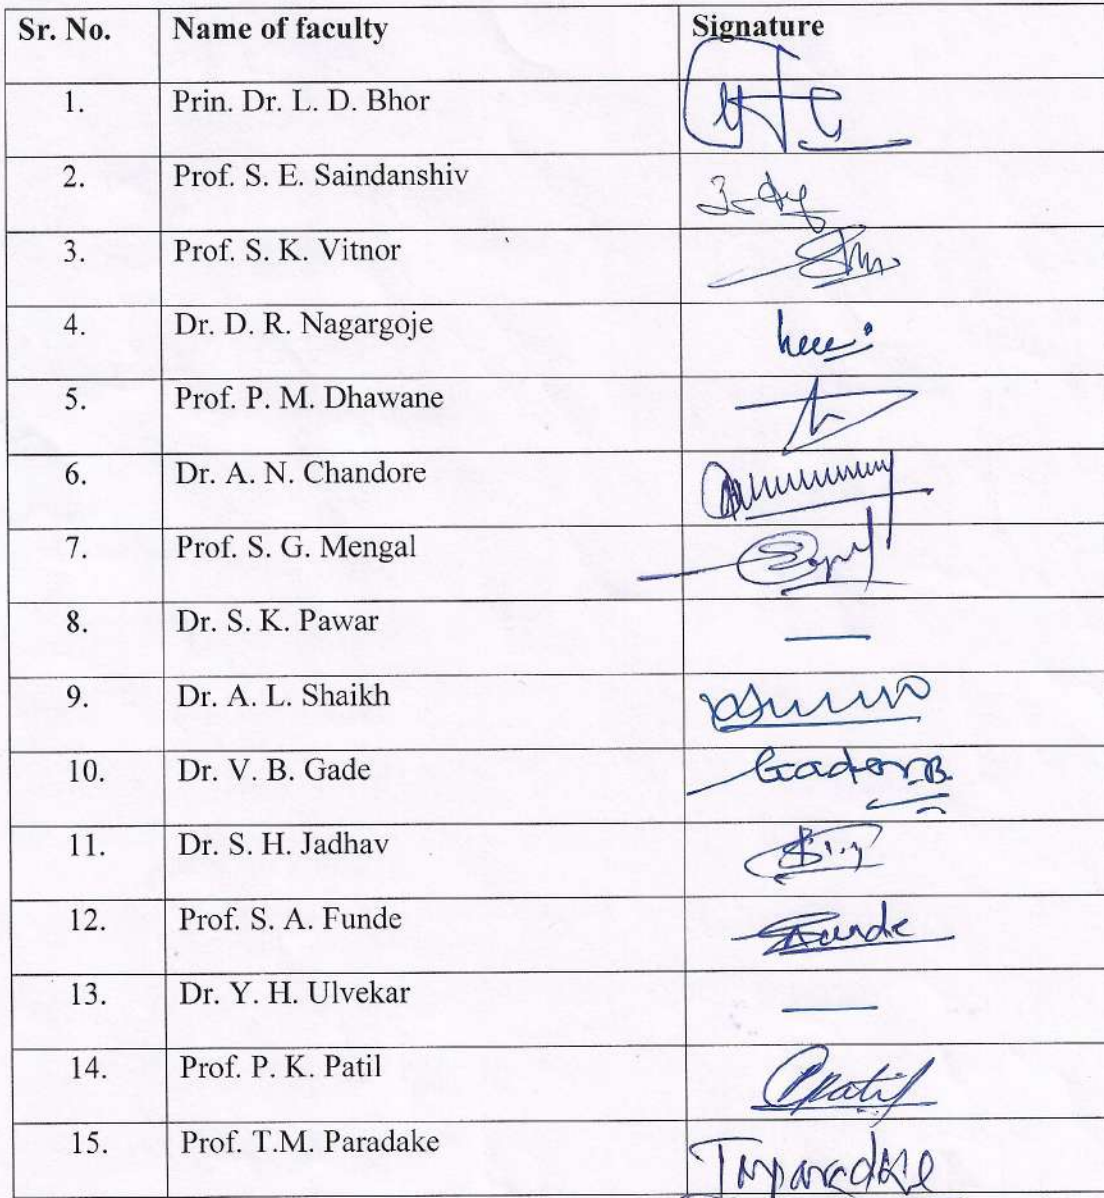 Sr. No. Name of faculty Signature
1. Prin. Dr. L. D. Bhor
2. Prof. S. E. Saindanshiv
3. Prof. S. K. Vitnor
4. Dr. D. R. Nagargoje
5. Prof. P. M. Dhawane
6. Dr. A. N. Chandore
7. Prof. S. G. Mengal
8. Dr. S. K. Pawar —
9. Dr. A. L. Shaikh
10. Dr. V. B. Gade
11. Dr. S. H. Jadhav
12. Prof. S. A. Funde
13. Dr. Y. H. Ulvekar —
14. Prof. P. K. Patil Ppatil
15. Prof. T.M. Paradake Tmparadake